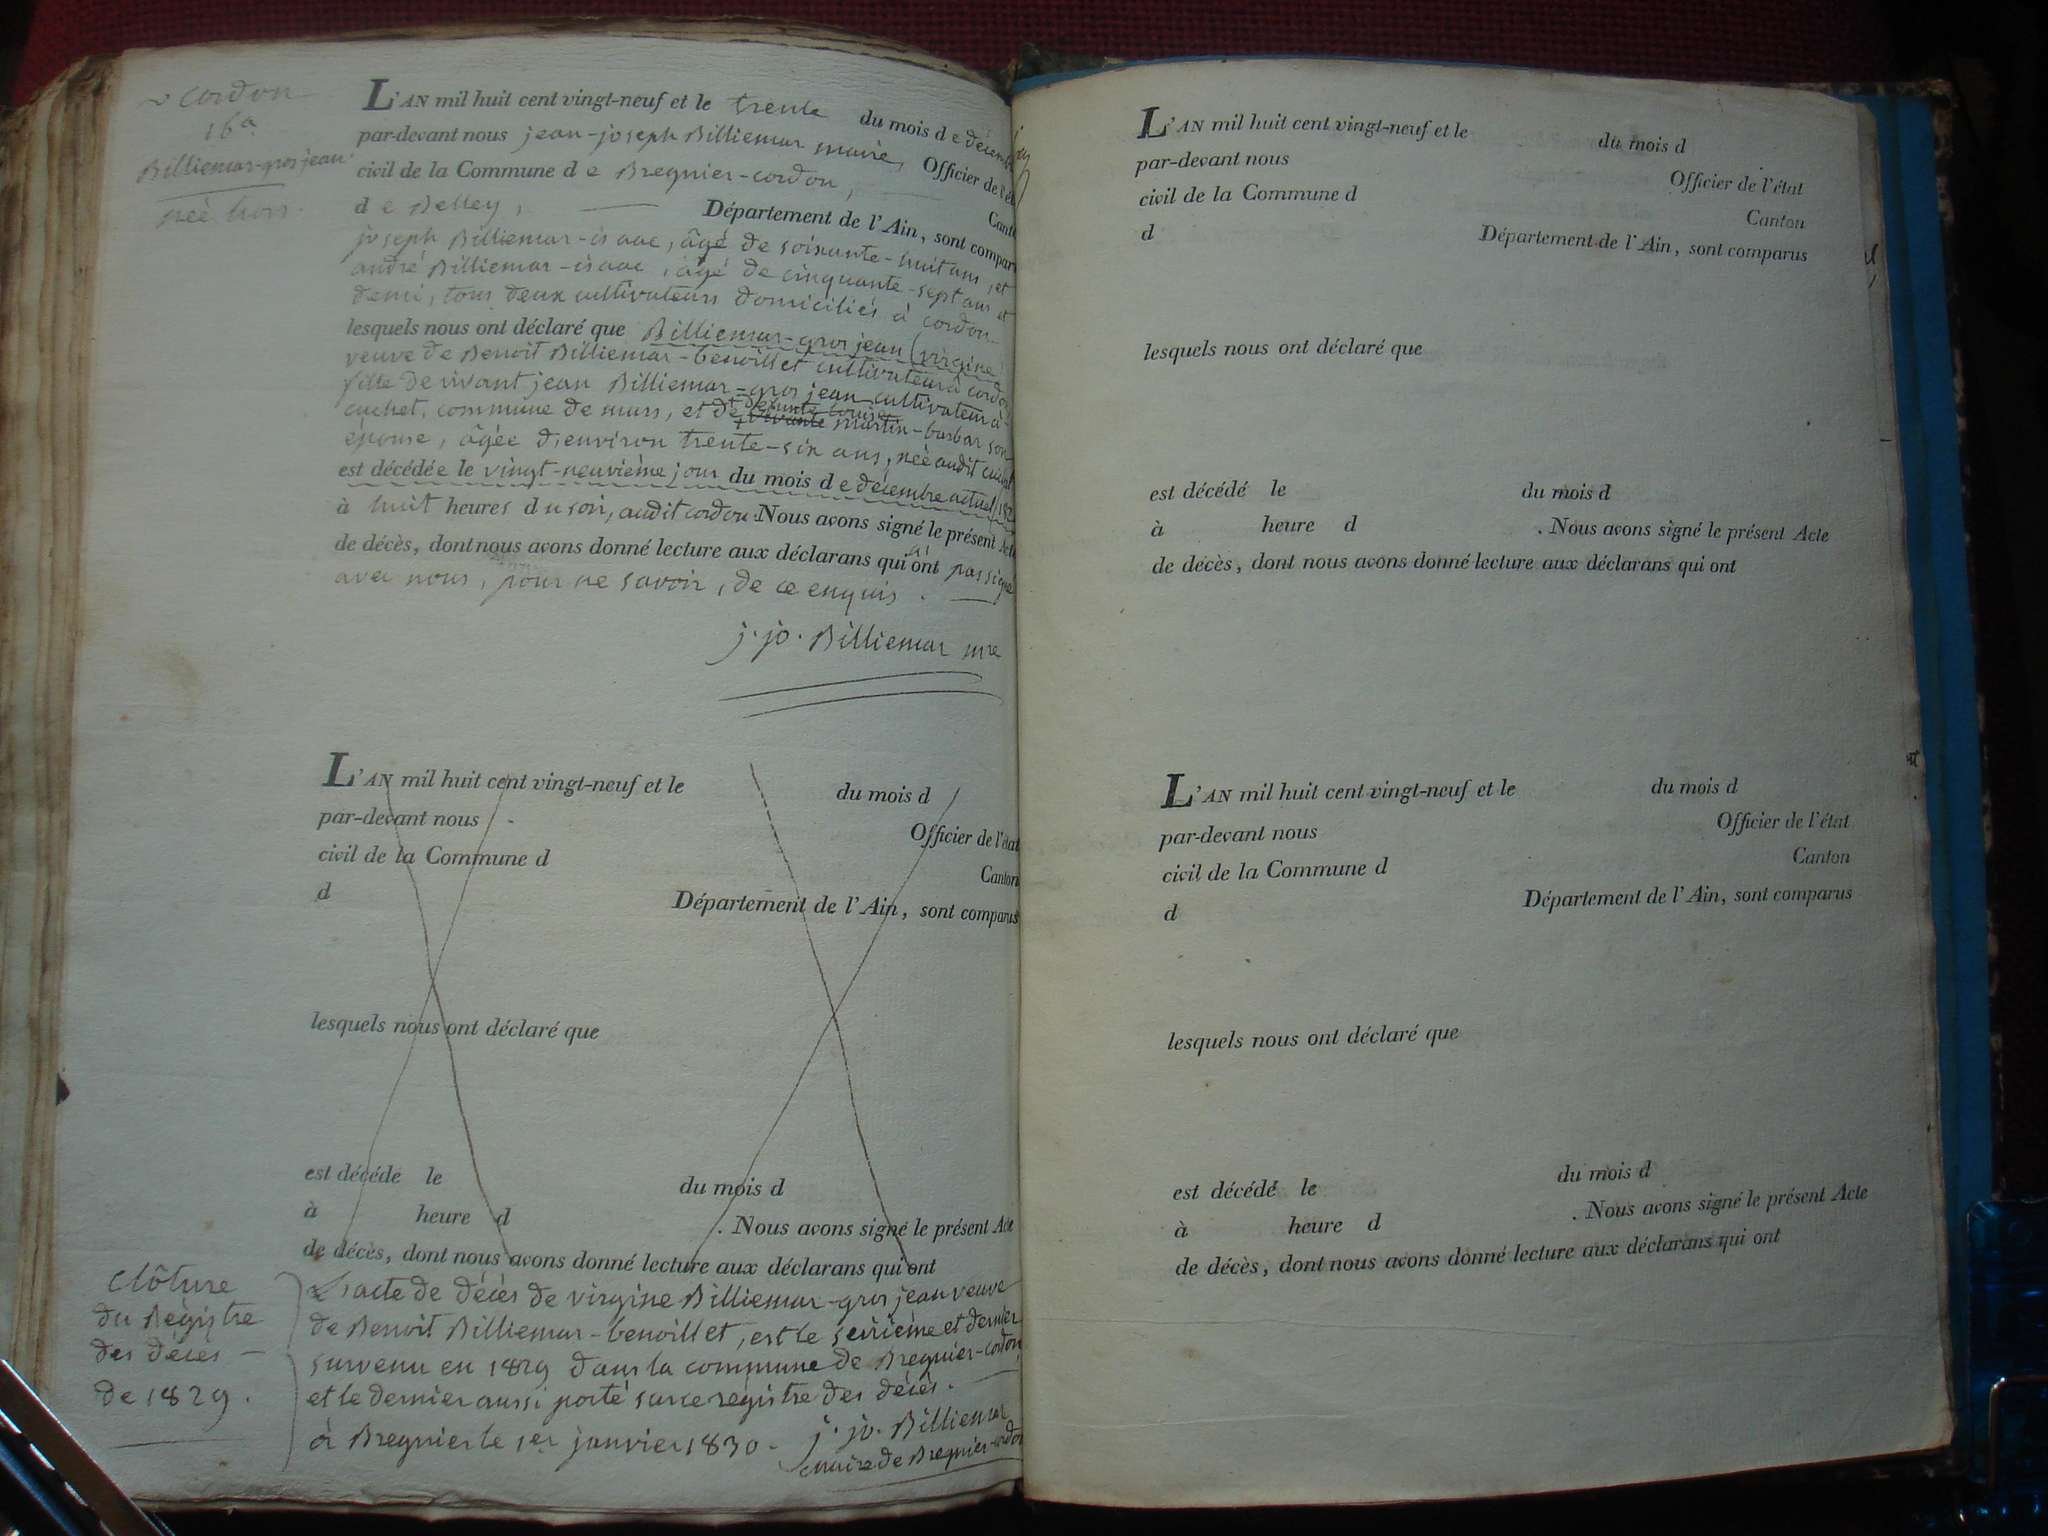 Cordon
16e
Billiemar-gros jean
née hors
L'AN mil huit cent vingt-neuf et le trente du mois de décemb
par-devant nous jean-joseph Billiemar maire, Officier de l'ét
civil de la Commune de Bregnier-cordon, Cant
de Belley, Département de l'Ain, sont compar
joseph Billiemar-isaac, âgé de soixante-huit ans, et
andré Billiemar-isaac, âgé de cinquante-sept ans et
demi, tous deux cultivateurs domiciliés à cordon
lesquels nous ont déclaré que Billiemar-gros jean (virgine
veuve de Benoit Billiemar-benoillet cultivateur à cordon
fille de vivant jean Billiemar-gros jean cultivateur à
cuchet, commune de murs, et de defunte Louise martin-barbar son
épouse, âgée d'environ trente-six ans, née audit cuchet
est décédée le vingt-neuvième jour du mois de décembre actuel, 182
à huit heures du soir, audit cordon. Nous avons signé le présent Acte
de décès, dont nous avons donné lecture aux déclarans qui n'ont pas signé
avec nous, pour ne savoir, de ce enquis.
j. jo. Billiemar mre
L'AN mil huit cent vingt-neuf et le du mois d
par-devant nous Officier de l'état
civil de la Commune d Canton
d Département de l'Ain, sont comparus
lesquels nous ont déclaré que
est décédé le du mois d
à heure d . Nous avons signé le présent Acte
de décès, dont nous avons donné lecture aux déclarans qui ont
Clôture
du Régistre
des décès
de 1829.
L'acte de décès de virgine Billiemar-gros jean veuve
de Benoit Billiemar-benoillet, est le seizième et dernier
survenu en 1829 dans la commune de Bregnier-cordon,
et le dernier aussi porté sur ce registre des décès.
à Bregnier le 1er janvier 1830. j. jo. Billiemar
maire de Bregnier-cordon
L'AN mil huit cent vingt-neuf et le du mois d
par-devant nous Officier de l'état
civil de la Commune d Canton
d Département de l'Ain, sont comparus
lesquels nous ont déclaré que
est décédé le du mois d
à heure d . Nous avons signé le présent Acte
de décès, dont nous avons donné lecture aux déclarans qui ont
L'AN mil huit cent vingt-neuf et le du mois d
par-devant nous Officier de l'état
civil de la Commune d Canton
d Département de l'Ain, sont comparus
lesquels nous ont déclaré que
est décédé le du mois d
à heure d . Nous avons signé le présent Acte
de décès, dont nous avons donné lecture aux déclarans qui ont